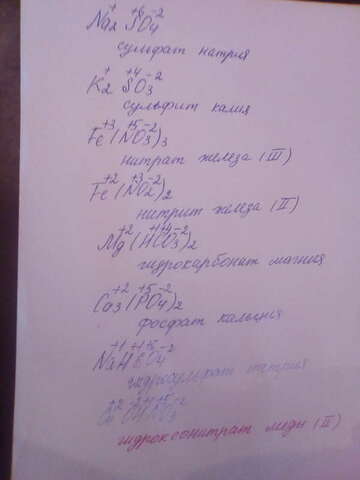 + +6 -2
Na2 SO4
сульфат натрия
+ +4 -2
K2 SO3
сульфит калия
+3 +5 -2
Fe (NO3)3
нитрат железа (III)
+2 +3 -2
Fe (NO2)2
нитрит железа (II)
+2 +1 +4 -2
Mg (HCO3)2
гидрокарбонат магния
+2 +5 -2
Ca3 (PO4)2
фосфат кальция
+1 +1 +6 -2
NaHSO4
гидросульфат натрия
CuOHNO3
гидроксонитрат меди (II)